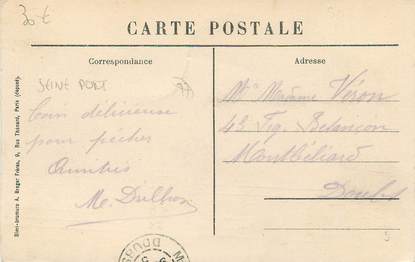 30 €
CARTE POSTALE
Correspondance
Adresse
SEINE PORT
77
Coin délicieux
pour pêcher
Amitiés
M. Dulhon
Mr Madame Véron
43 Fg. Besançon
Montbéliard
Doubs
Bleu-Irumure A. Breger Frères, 9, Rue Thénard, Paris (déposé).
DOUBS